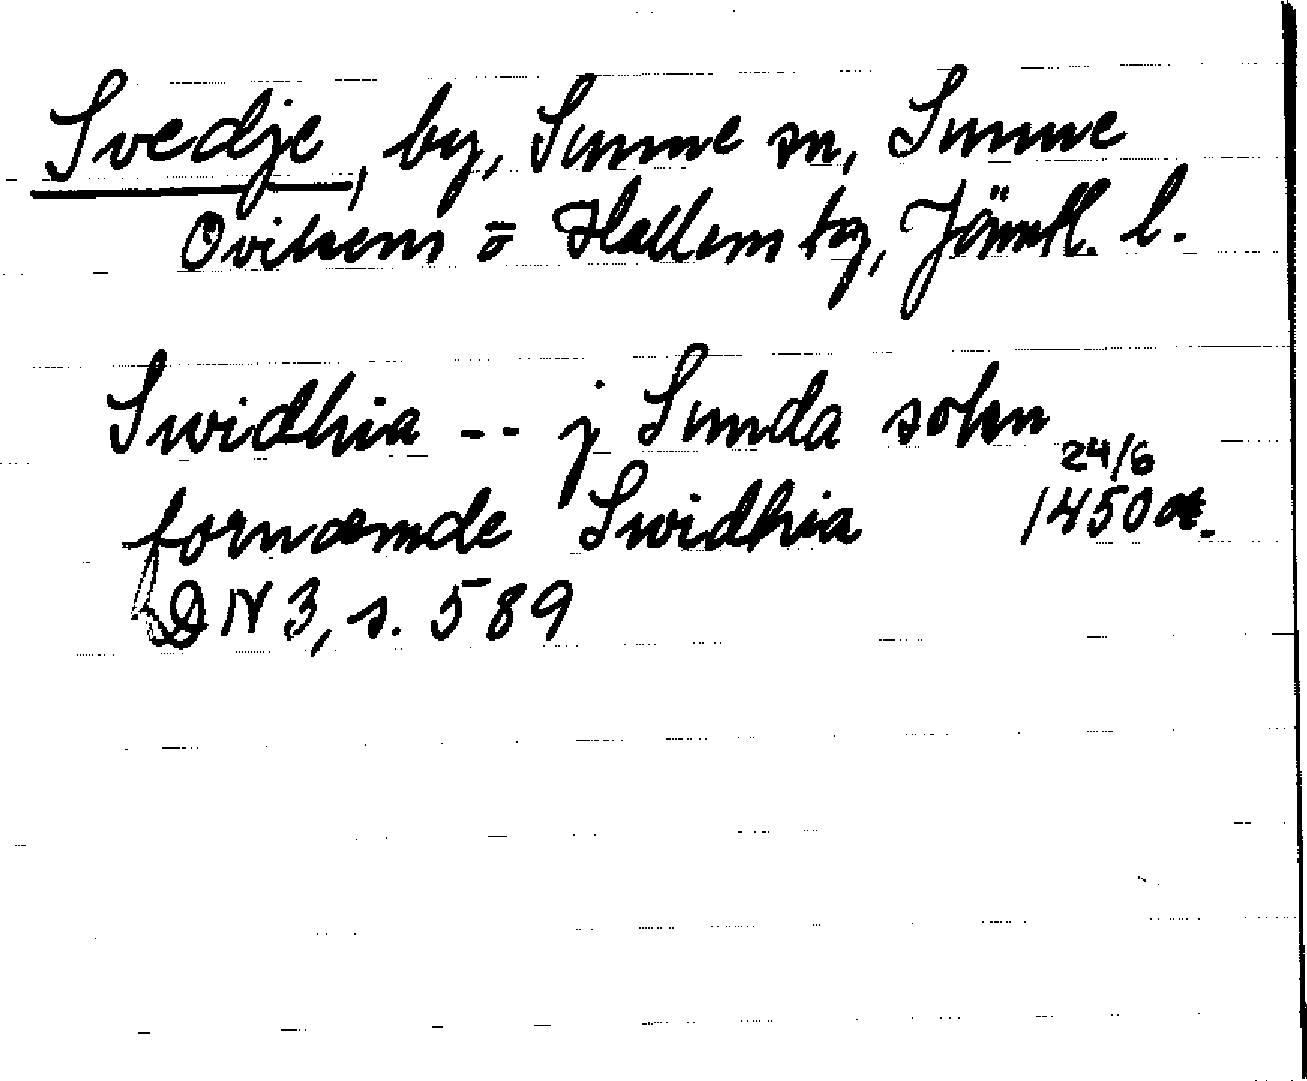 Svedje, by, Sunne sn, Sunne
Ovikens o Hallens tg, Jämtl. l.
Swidhia -- j Sunda sokn
24/6
fornæmde Swidhia 1450 at.
DN 3, s. 589